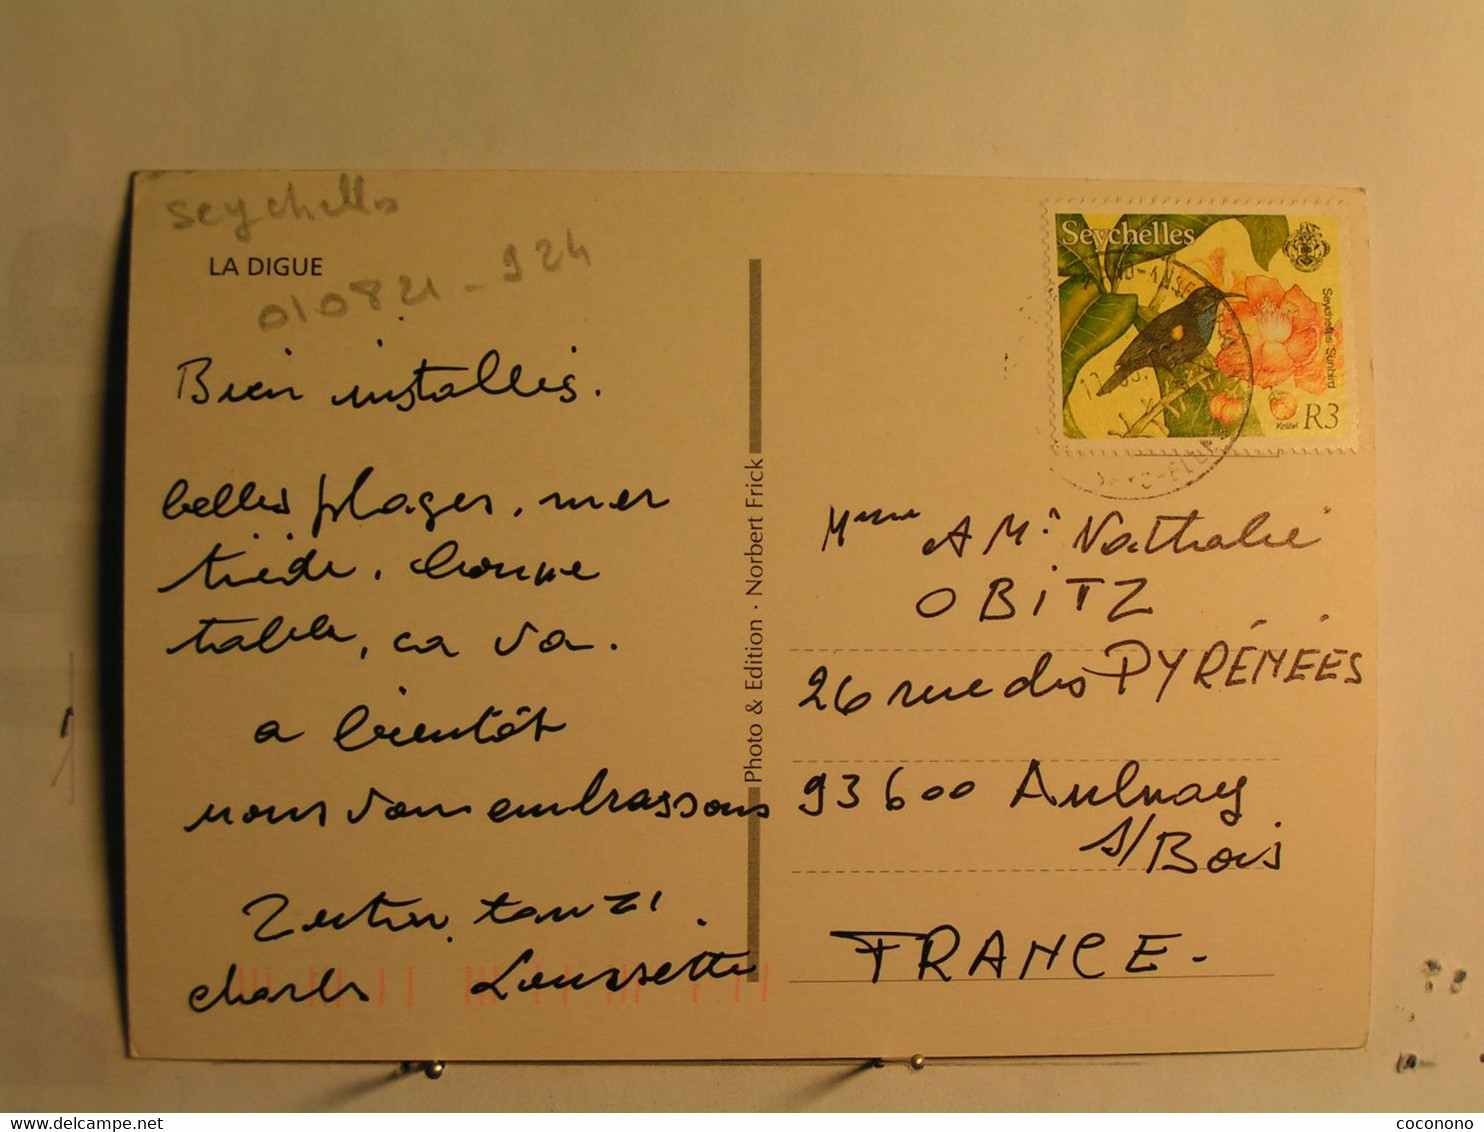 seychelles
LA DIGUE
010821-924
Bien installés.
belles plages, mer
tiède, bonne
table, ca va.
a bientôt
nous vous embrassons
charles Loussette
Photo & Edition · Norbert Frick
Seychelles
Seychelles Sunbird
Kolibri
R3
Mme A Mr Nathalie
OBITZ
26 rue des PYRÉNÉES
93600 Aulnay
s/Bois
FRANCE-
coconono